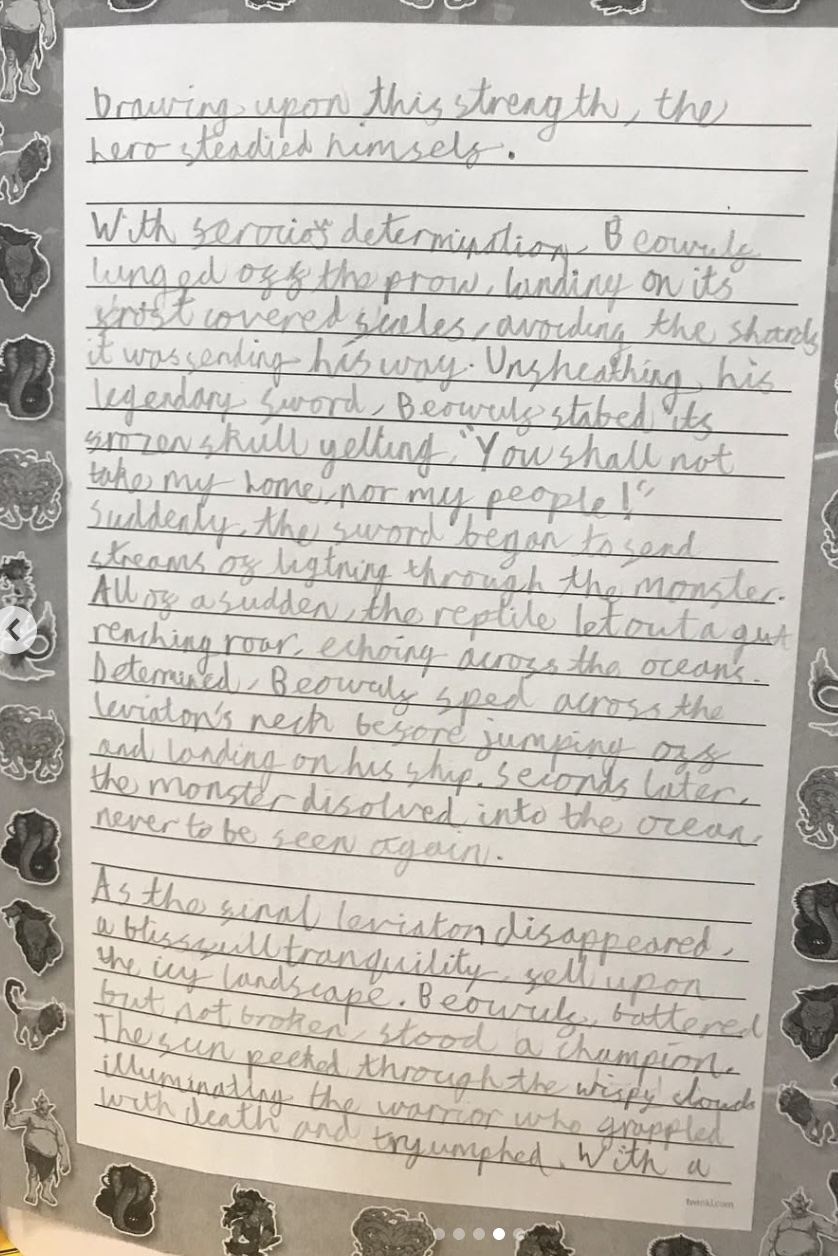 Drawing upon this strength, the
hero steadied himself.
With serocios determination, Beowulf
lunged off the prow, landing on its
frost covered scales, avoiding the shards
it was sending his way. Unsheathing his
legendary sword, Beowulf stabed its
frozen skull yelling, "You shall not
take my home, nor my people!"
Suddenly, the sword began to send
streams of ligtning through the monster.
All of a sudden, the reptile let out a gut
renching roar, echoing across the oceans.
Determined, Beowulf sped across the
leviaton's neck before jumping off
and landing on his ship. Seconds later,
the monster disolved into the ocean,
never to be seen again.
As the final leviaton disappeared,
a blissfull tranquility fell upon
the icy landscape. Beowulf, battered
but not broken, stood a champion.
The sun peeked through the wispy clouds
illuminating the warrior who grappled
with death and tryumphed. With a
twinkl.com